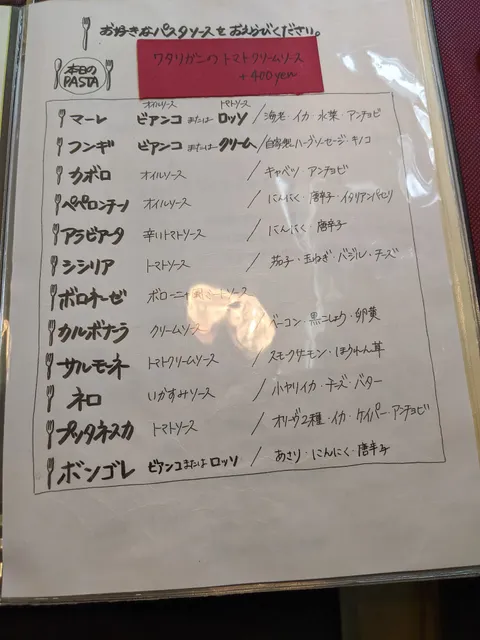 お好きなパスタソースをおえらびください。
本日のPASTA
ワタリガニのトマトクリームソース
+400yen
オイルソース トマトソース
マーレ ビアンコ または ロッソ / 海老・イカ・水菜・アンチョビ
フンギ ビアンコ または クリーム / 自家製ハーブソーセージ・キノコ
カボロ オイルソース / キャベツ・アンチョビ
ペペロンチーノ オイルソース / にんにく・唐辛子・イタリアンパセリ
アラビアータ 辛いトマトソース / にんにく・唐辛子
シシリア トマトソース / 茄子・玉ねぎ・バジル・チーズ
ボロネーゼ ボローニャ風ミートソース
カルボナーラ クリームソース / ベーコン・黒こしょう・卵黄
サルモーネ トマトクリームソース / スモークサーモン・ほうれん草
ネロ いかすみソース / 小ヤリイカ・チーズ・バター
プッタネスカ トマトソース / オリーヴ2種・イカ・ケイパー・アンチョビ
ボンゴレ ビアンコ または ロッソ / あさり・にんにく・唐辛子